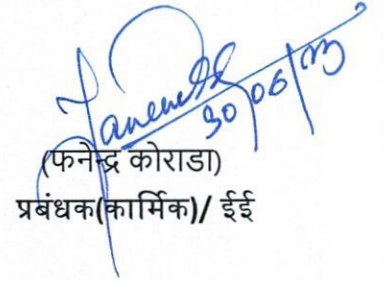 30/06/
(फनेन्द्र कोराडा)
प्रबंधक(कार्मिक)/ ईई